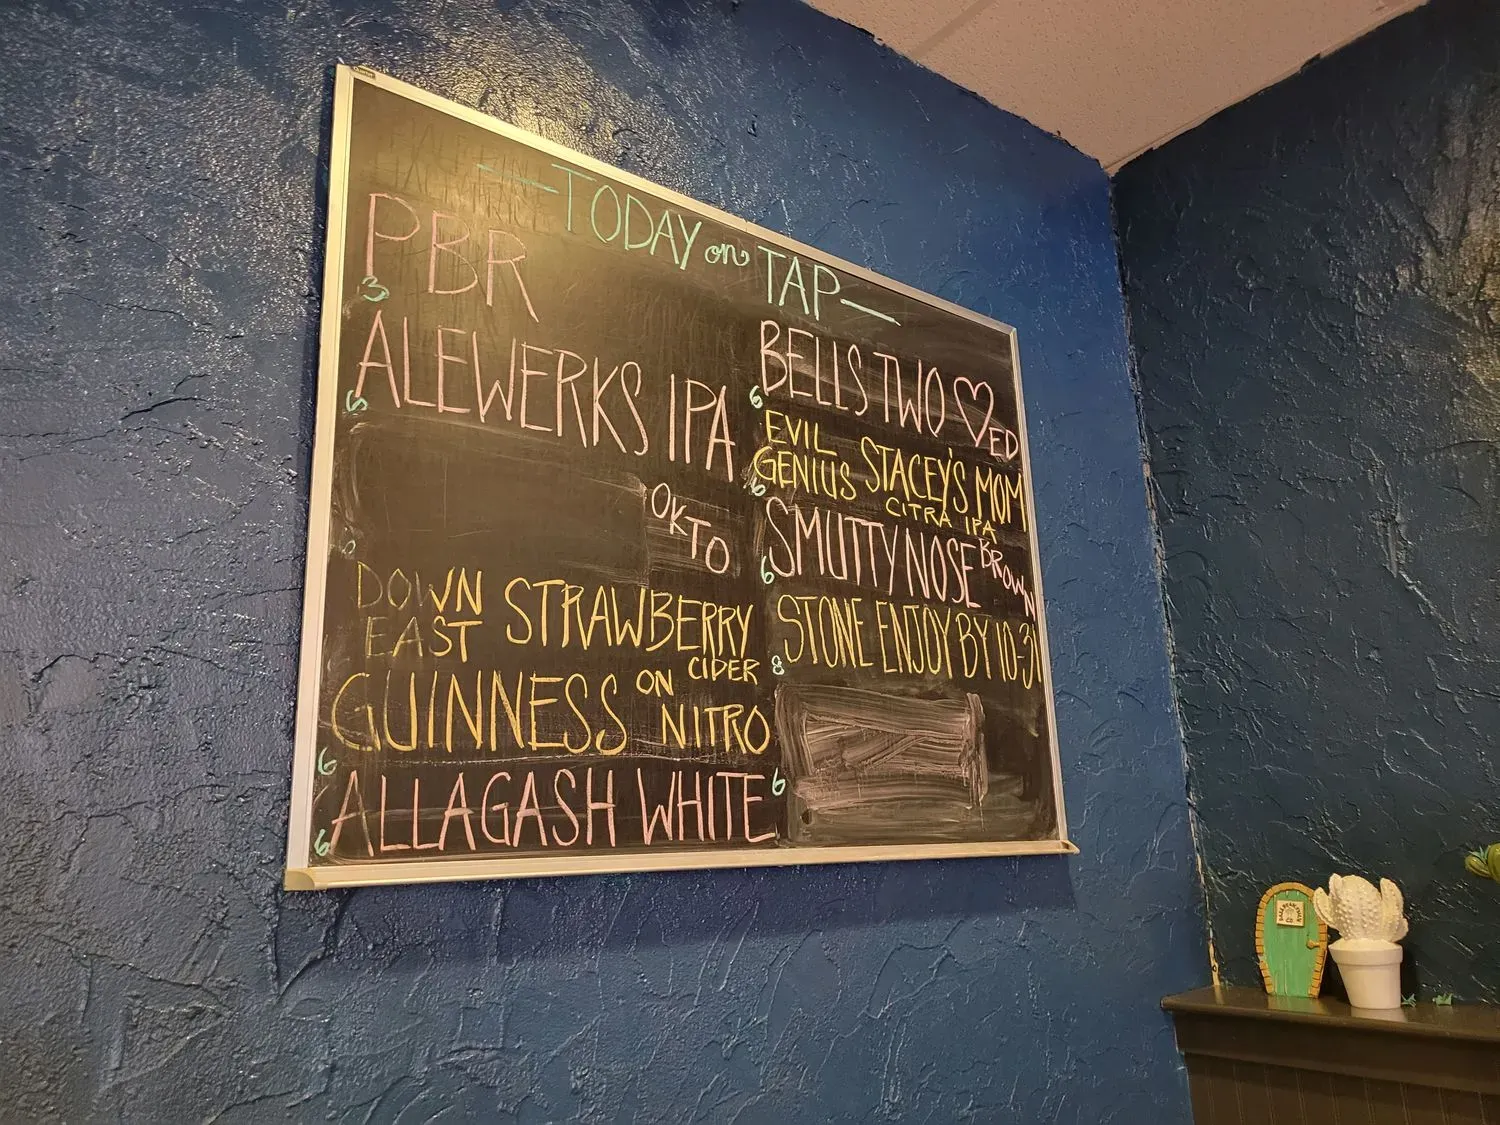 —TODAY on TAP—
PBR
3
ALEWERKS IPA
6
OKTO
DOWN EAST STRAWBERRY CIDER
6
GUINNESS ON NITRO
6
ALLAGASH WHITE
6
BELLS TWO ♡ED
6
EVIL GENIUS STACEY'S MOM
CITRA IPA
6
SMUTTYNOSE BROWN
6
STONE ENJOY BY 10-31
8
6